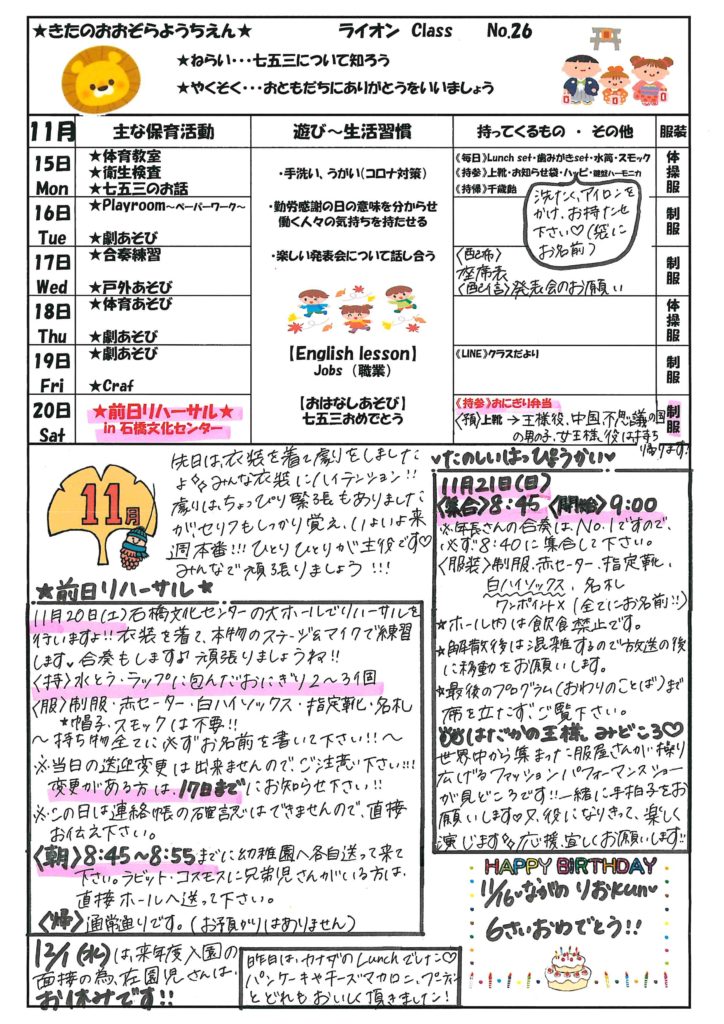 ★きたのおおぞらようちえん★ ライオン Class No.26
★ねらい・・・七五三について知ろう
★やくそく・・・おともだちにありがとうをいいましょう
11月 主な保育活動 遊び～生活習慣 持ってくるもの ・ その他 服装
15日 Mon
★体育教室
★衛生検査
★七五三のお話
16日 Tue
★Playroom～ペーパーワーク～
★劇あそび
17日 Wed
★合奏練習
★戸外あそび
18日 Thu
★体育あそび
★劇あそび
19日 Fri
★劇あそび
★Craf
20日 Sat
★前日リハーサル★
in 石橋文化センター
・手洗い、うがい(コロナ対策)
・勤労感謝の日の意味を分からせ
働く人々の気持ちを持たせる
・楽しい発表会について話し合う
【English lesson】
Jobs (職業)
【おはなしあそび】
七五三おめでとう
《毎日》Lunch set・歯みがきset・水筒・スモック
《持参》上靴・お知らせ袋・ハッピ・鍵盤ハーモニカ
《持帰》千歳飴
洗たく、アイロンを
かけ、お持たせ
下さい♡(袋に
お名前)
〈配布〉
座席表
〈配信〉発表会のお願い
《LINE》クラスだより
《持参》おにぎり弁当
〈預〉上靴 → 王様役、中国、不思議の国
の男の子、女王様、役は持ち
帰ります!
体操服
制服
制服
体操服
制服
制服
11月
先日は、衣装を着て劇をしました
よ♪みんな衣装にハイテンション!!
劇りは、ちょっぴり緊張もありました
が、セリフもしっかり覚え、いよいよ来
週本番!!! ひとりひとりが主役です♡
みんなで頑張りましょう!!!
★前日リハーサル★
11月20日(土)石橋文化センターの大ホールでリハーサルを
行いますよ!!衣装を着て、本物のステージ&マイクで練習
します。合奏もしますよ♪頑張りましょうね!!
〈持〉水とう・ラップに包んだおにぎり2～3個
〈服〉制服・赤セーター・白ハイソックス・指定靴・名札
★帽子・スモックは不要!!
～持ち物全てに必ずお名前を書いて下さい!!～
※当日の送迎変更は出来ませんので、ご注意下さい!!!
変更がある方は、17日までにお知らせ下さい!!
※この日は連絡帳の確認はできませんので、直接
お伝え下さい。
〈朝〉8:45～8:55までに幼稚園へ各自送って来て
下さい。ラビット・コスモスに兄弟児さんがいる方は、
直接ホールへ送って下さい。
〈帰〉通常通りです。(お預かりはありません)
♥たのしいはっぴょうかい♥
11月21日(日)
〈集合〉8:45 〈開始〉9:00
※年長さんの合奏はNo.1ですので、
必ず8:40に集合して下さい。
〈服装〉制服・赤セーター、指定靴、
白ハイソックス、名札
ワンポイント× (全てにお名前!!)
★ホール内は飲食禁止です。
★解散後は混雑するので放送の後
に移動をお願いします。
★最後のプログラム(おわりのことば)まで
席を立たず、ご覧下さい。
はだかの王様 みどころ♡
世界中から集まった服屋さんが繰り
広げるファッションパフォーマンスショー
が見どころです!!一緒に手拍子をお
願いします♡又、役になりきって、楽しく
演じます♪応援、宜しくお願いします!!
HAPPY BIRTHDAY
11/16 ♥ながの りおkun♥
6さいおめでとう!!
12/1(水)は、来年度入園の
面接の為、在園児さんは、
お休みです!!
昨日は、カナダのLunchでした♡
パンケーキやチーズマカロニ、プーティン
とどれもおいしく頂きました!